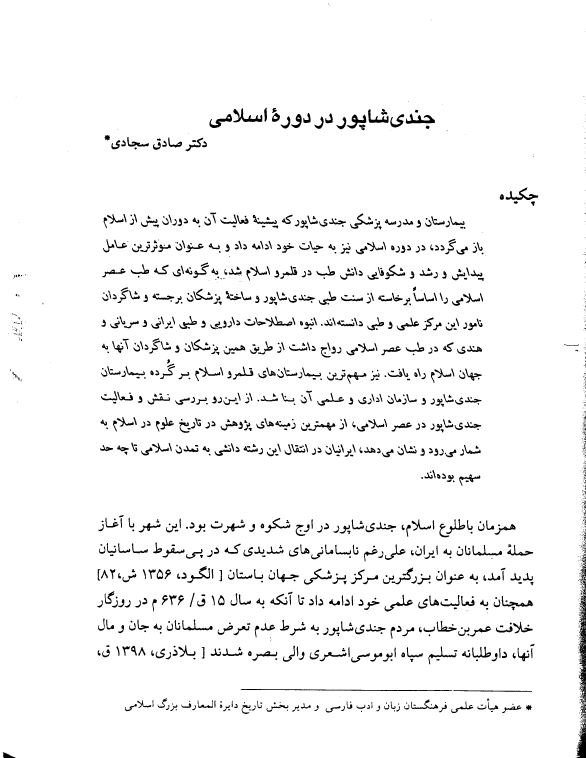 جندی‌شاپور در دورهٔ اسلامی
دکتر صادق سجادی*
چکیده
بیمارستان و مدرسه پزشکی جندی‌شاپور که پیشینهٔ فعالیت آن به دوران پیش از اسلام
باز می‌گردد، در دوره اسلامی نیز به حیات خود ادامه داد و به عنوان موثرترین عامل
پیدایش و رشد و شکوفایی دانش طب در قلمرو اسلام شد، به گونه‌ای که طب عصر
اسلامی را اساساً برخاسته از سنت طبی جندی‌شاپور و ساختهٔ پزشکان برجسته و شاگردان
نامور این مرکز علمی و طبی دانسته‌اند. انبوه اصطلاحات دارویی و طبی ایرانی و سریانی و
هندی که در طب عصر اسلامی رواج داشت از طریق همین پزشکان و شاگردان آنها به
جهان اسلام راه یافت. نیز مهم‌ترین بیمارستان‌های قلمرو اسلام بر گُرده بیمارستان
جندی‌شاپور و سازمان اداری و علمی آن بنا شد. از این‌رو بررسی نقش و فعالیت
جندی‌شاپور در عصر اسلامی، از مهمترین زمینه‌های پژوهش در تاریخ علوم در اسلام به
شمار می‌رود و نشان می‌دهد، ایرانیان در انتقال این رشته دانشی به تمدن اسلامی تا چه حد
سهیم بوده‌اند.
همزمان باطلوع اسلام، جندی‌شاپور در اوج شکوه و شهرت بود. این شهر با آغاز
حملهٔ مسلمانان به ایران، علی‌رغم نابسامانی‌های شدیدی که در پی‌سقوط ساسانیان
پدید آمد، به عنوان بزرگترین مرکز پزشکی جهان باستان [ الگود، ۱۳۵۶ ش،۸۲]
همچنان به فعالیت‌های علمی خود ادامه داد تا آنکه به سال ۱۵ ق/ ۶۳۶ م در روزگار
خلافت عمربن‌خطاب، مردم جندی‌شاپور به شرط عدم تعرض مسلمانان به جان و مال
آنها، داوطلبانه تسلیم سپاه ابوموسی‌اشعری والی بصره شدند [ بلاذری، ۱۳۹۸ ق،
* عضو هیأت علمی فرهنگستان زبان و ادب فارسی و مدیر بخش تاریخ دایرة المعارف بزرگ اسلامی